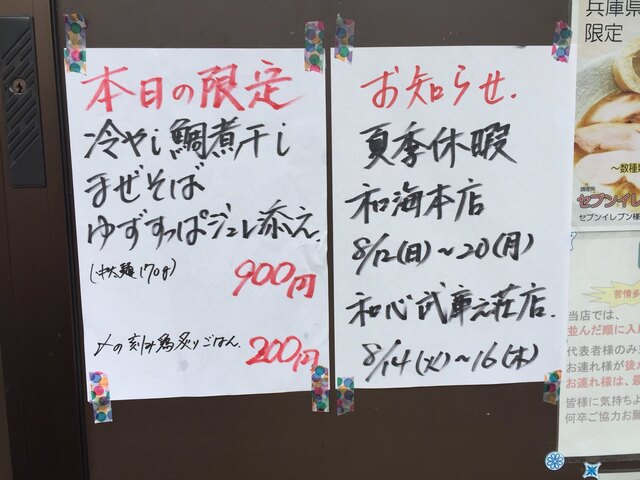 本日の限定
冷やし鯛煮干し
まぜそば
ゆずすっぱジュレ添え.
(中太麺170g)
900円
〆の刻み鶏炙りごはん.
200円
お知らせ.
夏季休暇
和海本店
8/12(日)~20(月)
和心武庫之荘店.
8/14(火)~16(木)
兵庫県
限定
~数種
セブンイレ
セブン-イレブン様
苦情多
当店では、
並んだ順に入
代表者様のみ
お連れ様が後か
お連れ様は、最
皆様に気持ちよ
何卒ご協力お願